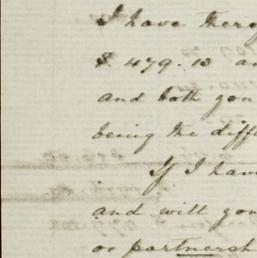 I have there
$. 479. 13 an
and both you
being the diff
If I hav
and will you
or partnersh